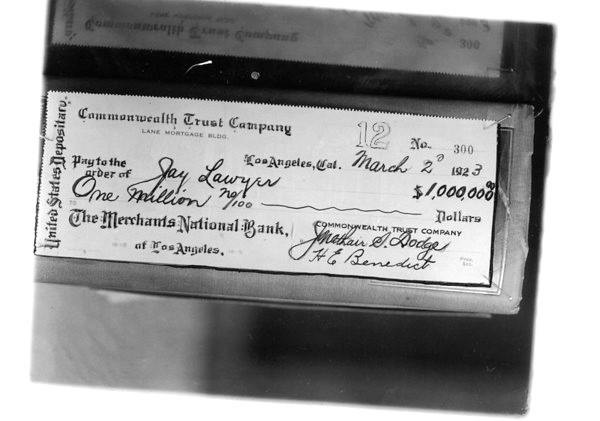 Commonwealth Trust Company
LANE MORTGAGE BLDG.
12 No. 300
Los Angeles, Cal. March 2ⁿᵈ 1923
Pay to the order of Jay Lawyer $1,000,000⁰⁰
One Million no/100 Dollars
TO
The Merchants National Bank,
of Los Angeles.
COMMONWEALTH TRUST COMPANY
Jonathan S. Dodge
H E Benedict
United States Depositary.
Commonwealth Trust Company
LANE MORTGAGE BLDG.
300